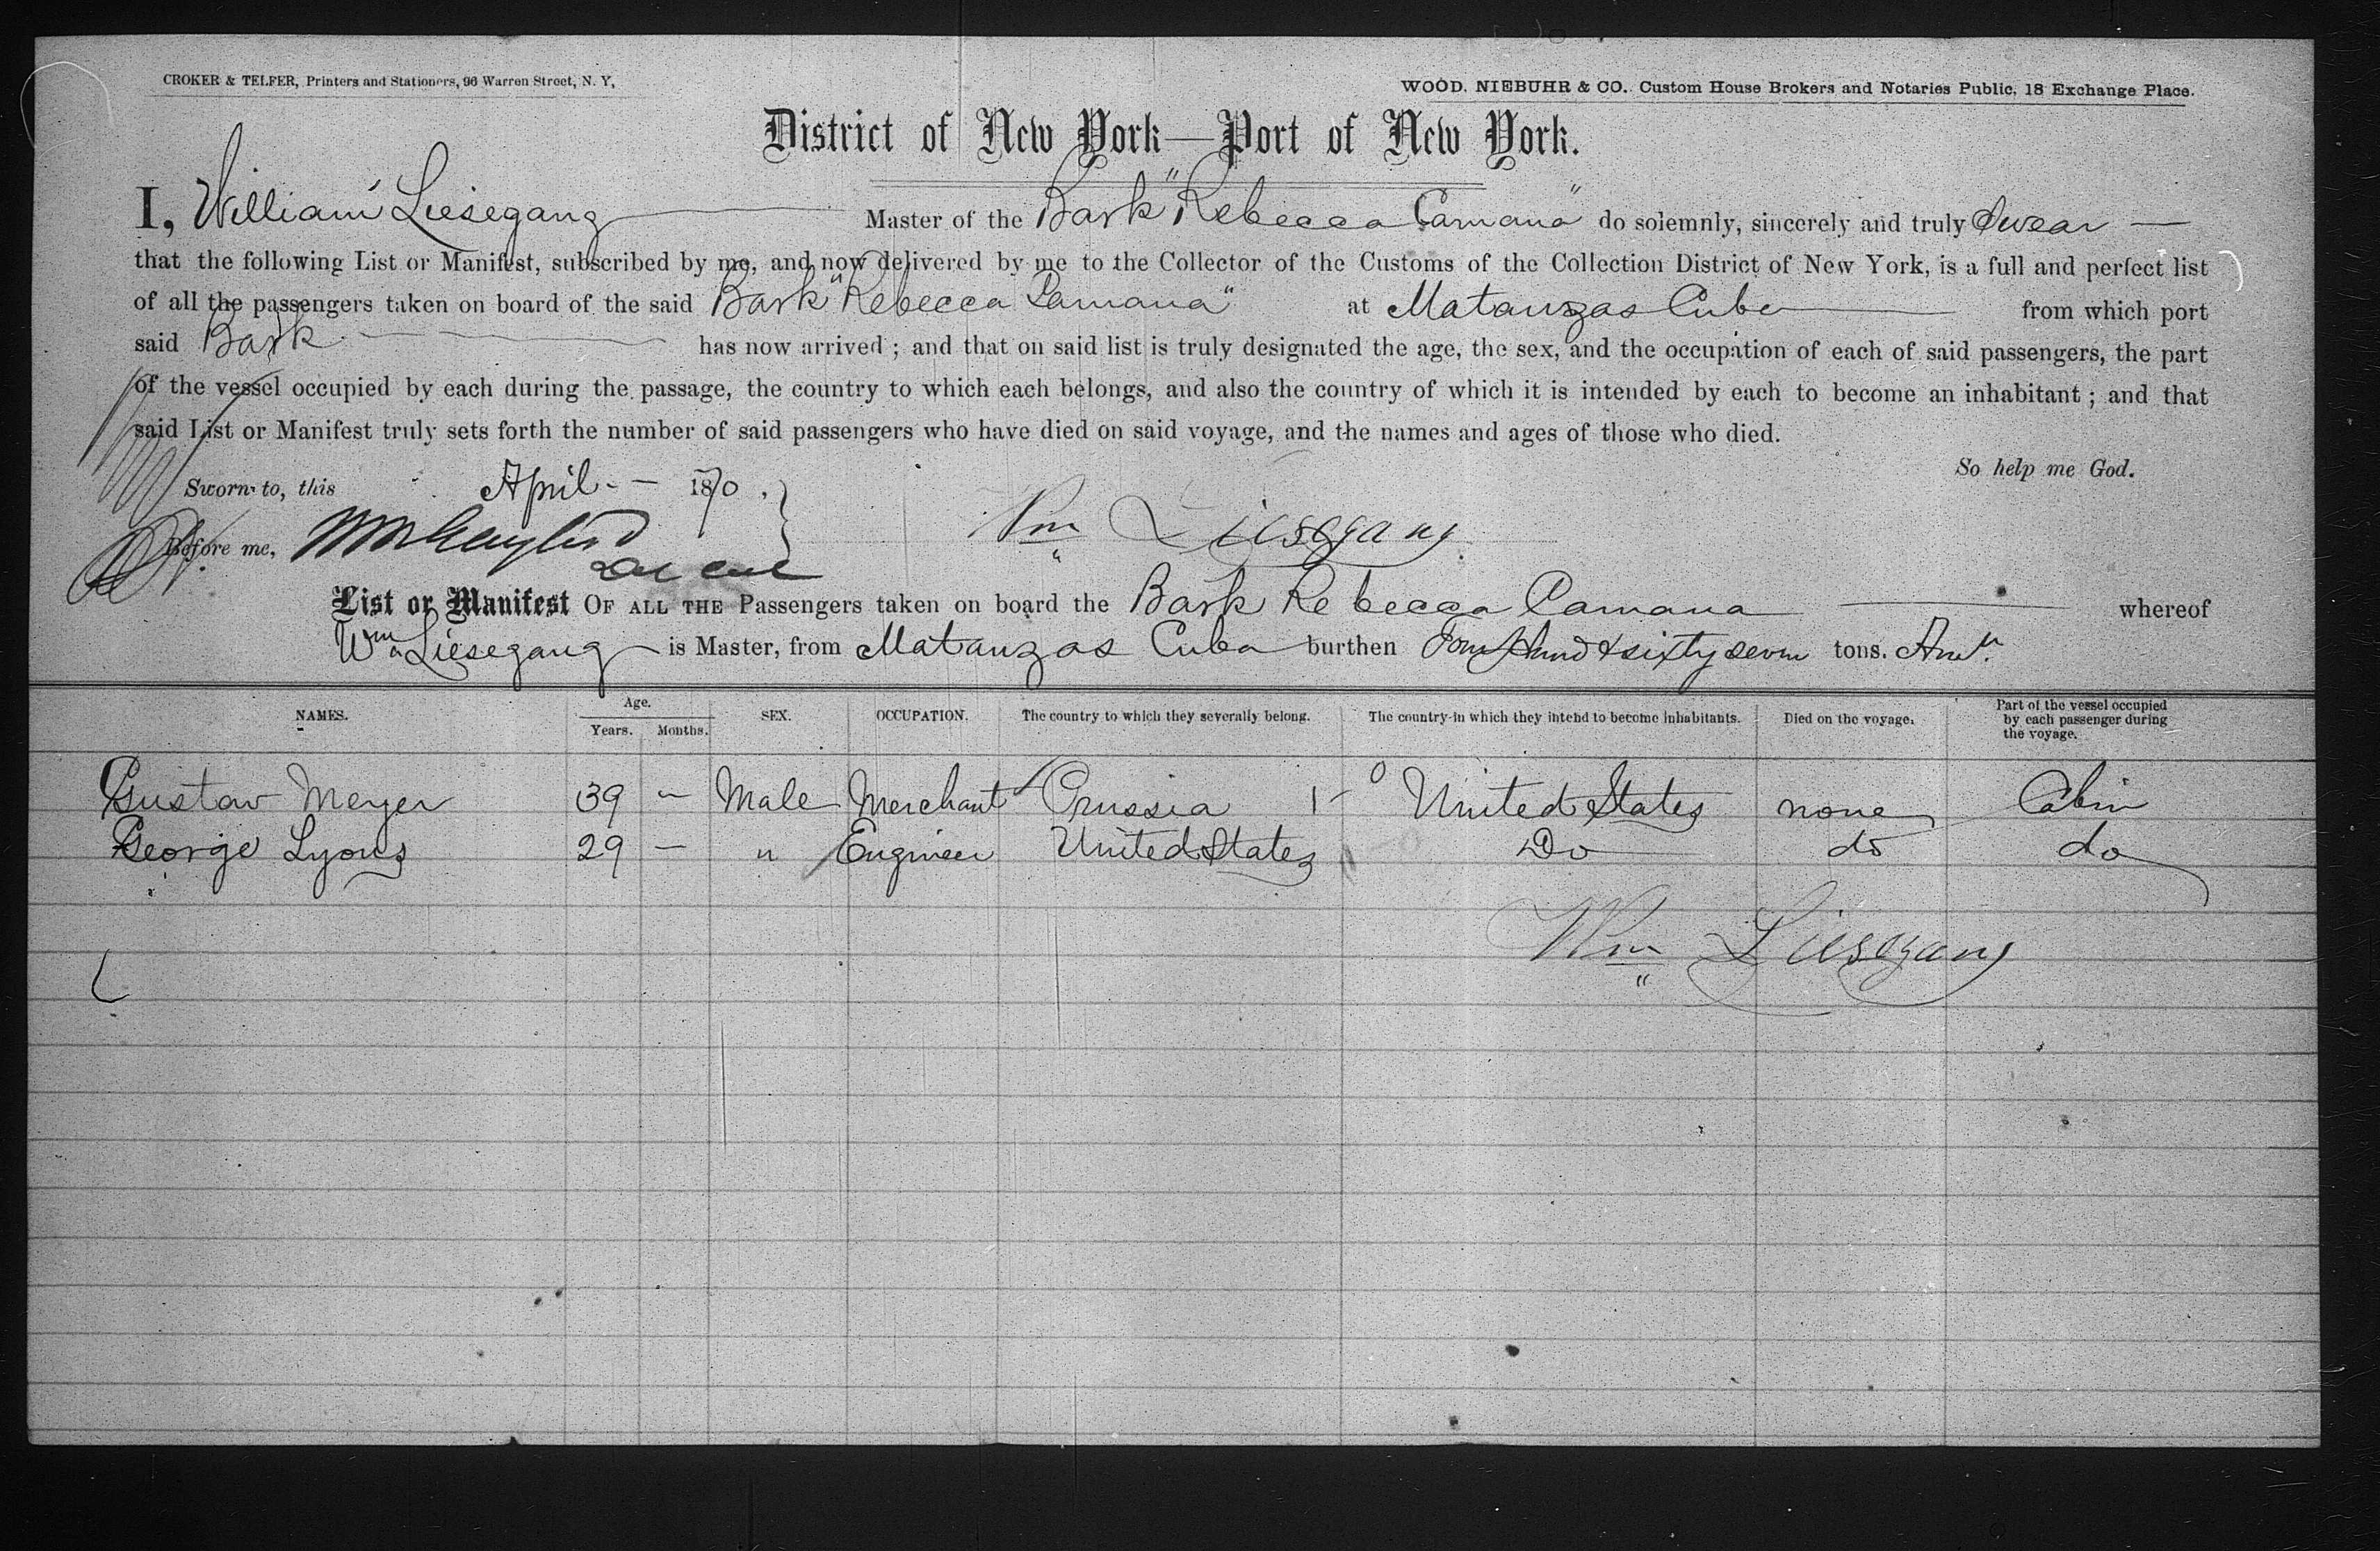 CROKER & TELFER, Printers and Stationers, 96 Warren Street, N. Y,
WOOD. NIEBUHR & CO. Custom House Brokers and Notaries Public, 18 Exchange Place.
District of New York—Port of New York.
I, William Liesegang Master of the Bark "Rebecca Camana" do solemnly, sincerely and truly Swear —
that the following List or Manifest, subscribed by me, and now delivered by me to the Collector of the Customs of the Collection District of New York, is a full and perfect list
of all the passengers taken on board of the said Bark "Rebecca Camana" at Matanzas Cuba from which port
said Bark has now arrived; and that on said list is truly designated the age, the sex, and the occupation of each of said passengers, the part
of the vessel occupied by each during the passage, the country to which each belongs, and also the country of which it is intended by each to become an inhabitant; and that
said List or Manifest truly sets forth the number of said passengers who have died on said voyage, and the names and ages of those who died.
So help me God.
Sworn to, this April — 1870.
Before me,
Wm Liesegang
List or Manifest OF ALL THE Passengers taken on board the Bark Rebecca Camana whereof
Wm Liesegang is Master, from Matanzas Cuba burthen Four Hund & sixty seven tons. Amn.
NAMES. Age. Years. Months. SEX. OCCUPATION. The country to which they severally belong. The country in which they intend to become inhabitants. Died on the voyage. Part of the vessel occupied by each passenger during the voyage.
Gustav Meyer 39 — Male Merchant Prussia 1 - 0 United States none Cabin
George Lyons 29 — " Engineer United States Do do do
Wm Liesegang